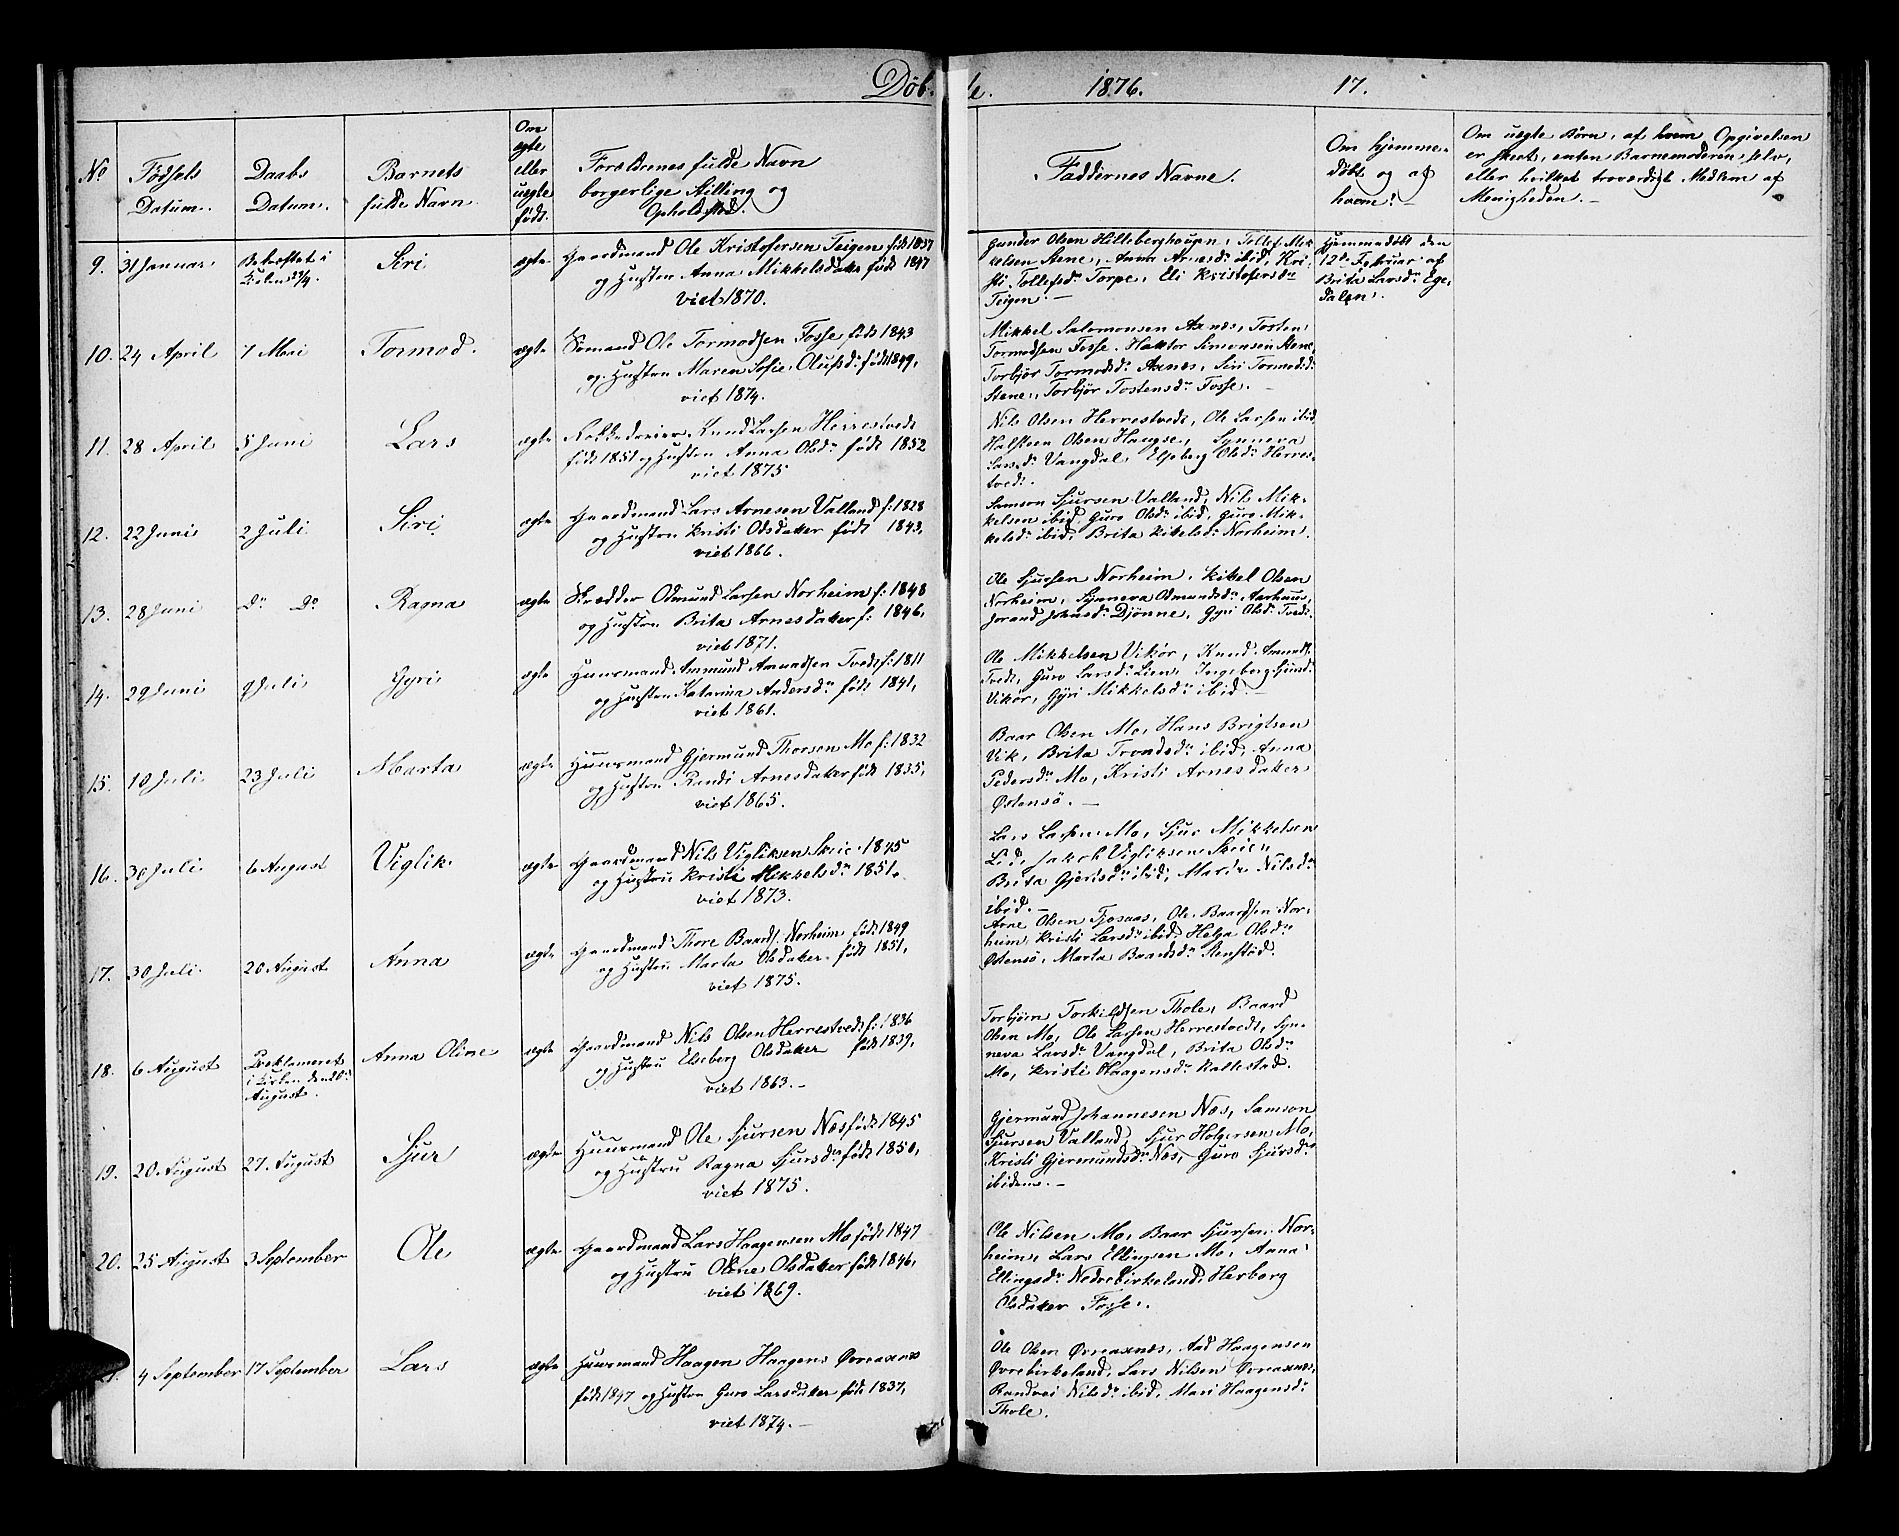 Döbte. 1876. 17.
No
Födsels
Datum.
Daabs
Datum.
Barnets
fulde Navn
Om
ægte
eller
uægte
födt.
Forældrenes fulde Navn
borgerlige Stilling og
Opholdsted.
Faddernes Navne.
Om hjemme-
döbt og af
hvem?
Om uægte Börn, af hvem Opgivelsen
er skeet, enten Barnemoderen selv,
eller hvilket troværdigt Medlem af
Menigheden.
9. 31 Januar
Bekræftet i
Kirken
Siri
ægte
Gaardmand Ole Kristofersen Teigen födt 1837
og Hustru Anna Mikkelsdater födt 1847
viet 1870.
Gunder Olsen Hilleberghougen, Tollef Mik-
kelsen Stene, Anna Arnesdr ibid, Kri-
sti Tollefsdr Torpe, Eli Kristofersdr
Teigen.
Hjemmedöbt den
12te Februar af
Brita Larsdr Ege-
dalen.
10. 24 April
7 Mai
Tormod.
ægte
Sömand Ole Tormodsen Fosse, födt 1843
og Hustru Maren Sofie Olufsdr födt 1849,
viet 1874.
Mikkel Salomonsen Axnes, Tosten
Tormodsen Fosse, Haktor Simonsen Stene,
Torbjör Tormodsdr Axnes, Siri Tormodsdr
Stene, Torbjör Tostensdr Fosse.
11. 28 April
5 Juni
Lars
ægte
Rokkedreier Knud Larsen Herrestvedt
födt 1851 og Hustru Anna Olsdr födt 1852
viet 1875
Nils Olsen Herrestvedt, Ole Larsen ibid
Halsteen Olsen Haugse, Synneva
Larsdr Vangdal, Elseberg Olsdr Herres-
tvedt.
12. 22 Juni
2 Juli
Siri
ægte
Gaardmand Lars Arnesen Valland f: 1828
og Hustru Kristi Odsdater födt 1843,
viet 1866.
Samson Sjursen Valland, Nils Mik-
kelsen ibid, Guro Olsdr ibid, Guro Mik-
kelsdr ibid, Brita Kikelsdr Norheim.
13. 28 Juni
Do Do
Ragna
ægte
Skrædder Odmund Larsen Norheim f: 1848
og Hustru Brita Arnesdater f: 1846,
viet 1871.
Ole Sjursen Norheim, Kittel Olsen
Norheim, Synneva Odmundsdr Aarhuus,
Jorand Johnsdr Djönne, Gyri Olsdr Tvedt.
14. 29 Juni
9 Juli
Gyri
ægte
Huusmand Ammund Amundsen Tvedt f: 1811
og Hustru Katarina Andersdr födt 1841,
viet 1861.
Ole Mikkelsen Vikör, Knud Amunds.
Tvedt, Guro Larsdr Lien, Ingeborg
Vikör, Gyri Mikkelsdr ibid.
15. 10 Juli
23 Juli
Marta
ægte
Huusmand Gjermund Thorsen Mo f: 1832
og Hustru Randi Arnesdater födt 1835,
viet 1865.
Baar Olsen Mo, Hans Brigtsen
Vik, Brita Trondsdr ibid, Anna
Pedersdr Mo, Kristi Arnesdater
Östensö.
16. 30 Juli
6 August
Viglik
ægte
Gaardmand Nils Vigliksen Skeie: 1845
og Hustru Kristi Mikkelsdr 1851.
viet 1873.
Lars Larsen Mo, Sjur Mikkelsen
Lid, Jakob Vigliksen Skeie,
Brita Gjertsdr ibid, Marta Nilsdr
ibid.
17. 30 Juli
20 August
Anna
ægte
Gaardmand Thore Baards. Norheim födt 1849
og Hustru Marta Olsdater födt 1851,
viet 1875.
Arne Olsen Tjosaas, Ole Baardsen Nor-
heim, Kristi Larsdr ibid, Helga Olsdr
Östensö, Marta Baardsdr Stenstöd.
18. 6 August
Proklameret
i Kirken den 20de
August.
Anna Oline
ægte
Gaardmand Nils Olsen Herrestvedt f: 1836
og Hustru Elseberg Olsdater födt 1839,
viet 1863.
Torbjörn Torkildsen Thole, Baard
Olsen Mo, Ole Larsen Herrestvedt, Syn-
neva Larsdr Vangdal, Brita Olsdr
Mo, Kristi Haagensdr Kalkestad.
19. 20 August
27 August
Sjur
ægte
Huusmand Ole Sjursen Næs födt 1845
og Hustru Ragna Sjursdr födt 1850,
viet 1875.
Gjermund Johannesen Næs, Samson
Sjursen Valland, Sjur Holgersen Mo,
Kristi Gjermundsdr Næs, Guro Sjursdr
ibidem.
20. 25 August
3 September
Ole
ægte
Gaardmand Lars Haagensen Mo födt 1847
og Hustru Oline Olsdater födt 1846,
viet 1869.
Ole Nilsen Mo, Baar Sjursen Nor-
heim, Lars Ellingsen Mo, Anna
Ellingsdr Nedrebirkeland, Herborg
Olsdater Fosse.
4 September
17 September
Lars
ægte
Huusmand Haagen Haagens. Övreaxnes
födt 1847 og Hustru Guro Larsdater födt 1837,
viet 1874.
Ole Olsen Övreaxnes, Aad Haagensen
Övrebirkeland, Lars Nilsen Övreaxnes,
Randvei Nilsdr ibid, Mari Haagensdr
Thole.